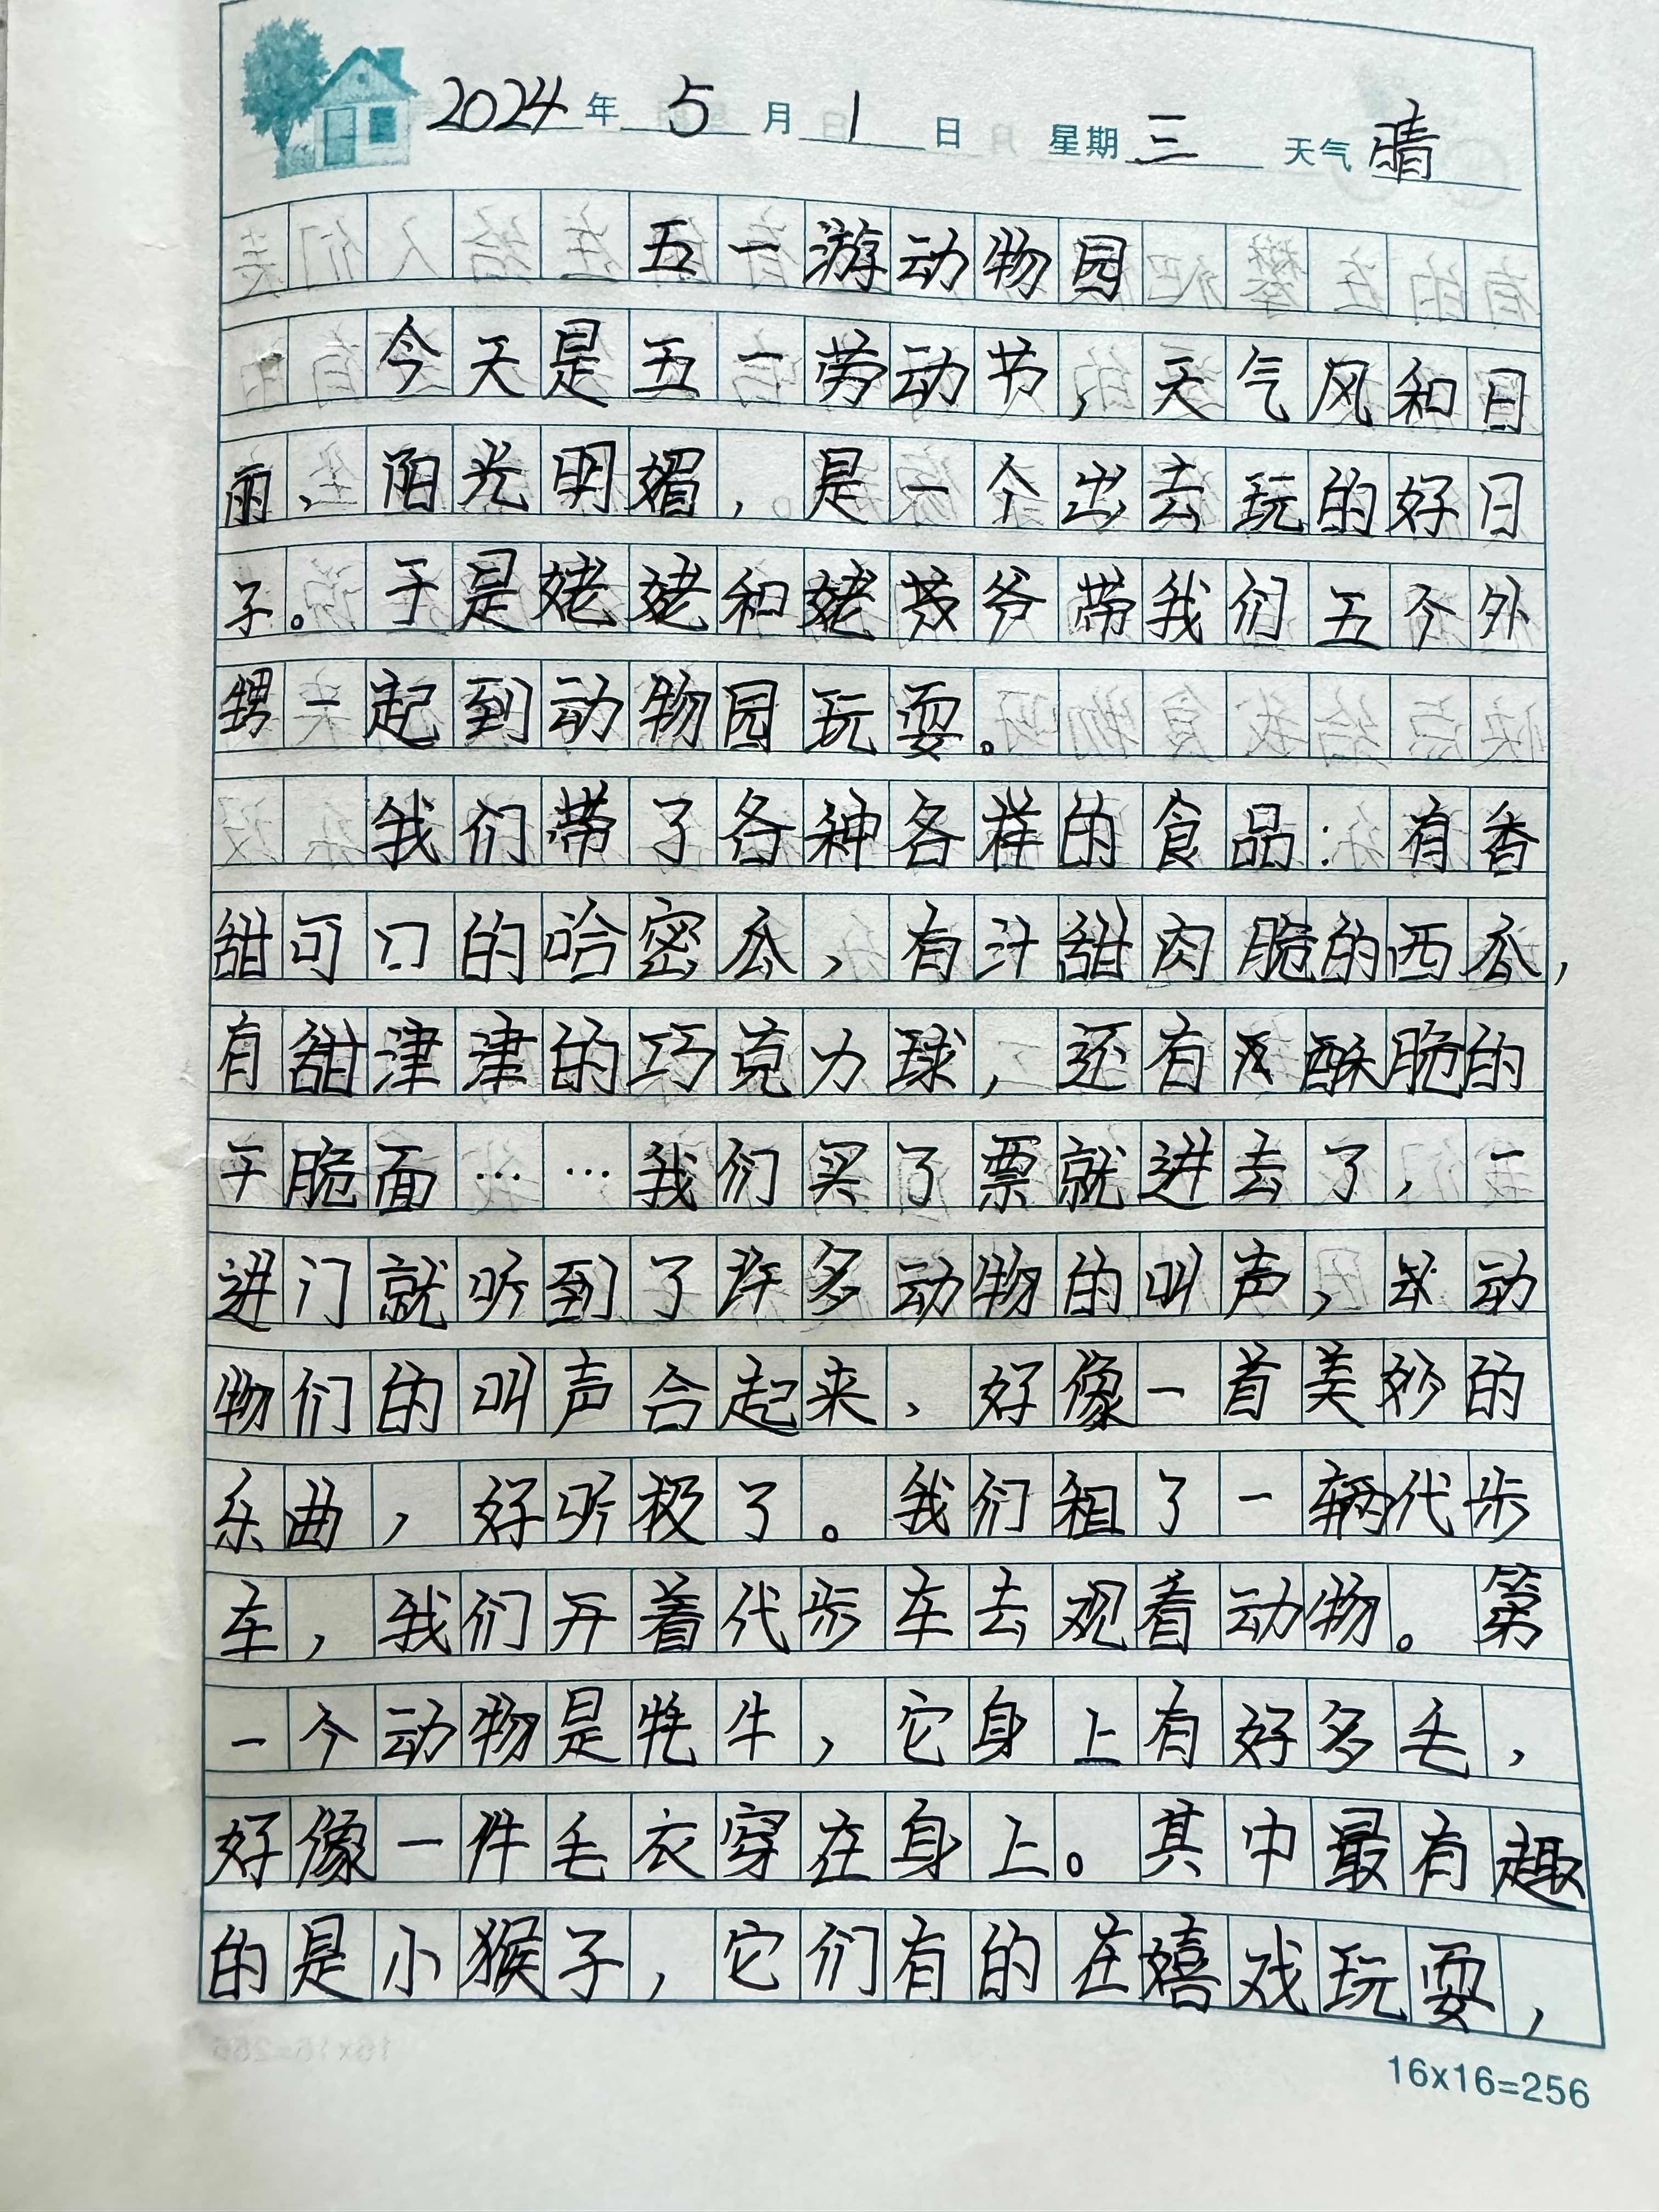 2024年5月1日 星期三 天气晴
五一游动物园
今天是五一劳动节，天气风和日
丽、阳光明媚，是一个出去玩的好日
子。于是姥姥和姥爷带我们五个外
甥一起到动物园玩耍。
我们带了各种各样的食品：有香
甜可口的哈密瓜，有汁甜肉脆的西瓜，
有甜津津的巧克力球，还有酥脆的
干脆面……我们买了票就进去了，一
进门就听到了许多动物的叫声，动
物们的叫声合起来，好像一首美妙的
乐曲，好听极了。我们租了一辆代步
车，我们开着代步车去观看动物。第
一个动物是牦牛，它身上有好多毛，
好像一件毛衣穿在身上。其中最有趣
的是小猴子，它们有的在嬉戏玩耍，
16x16=256